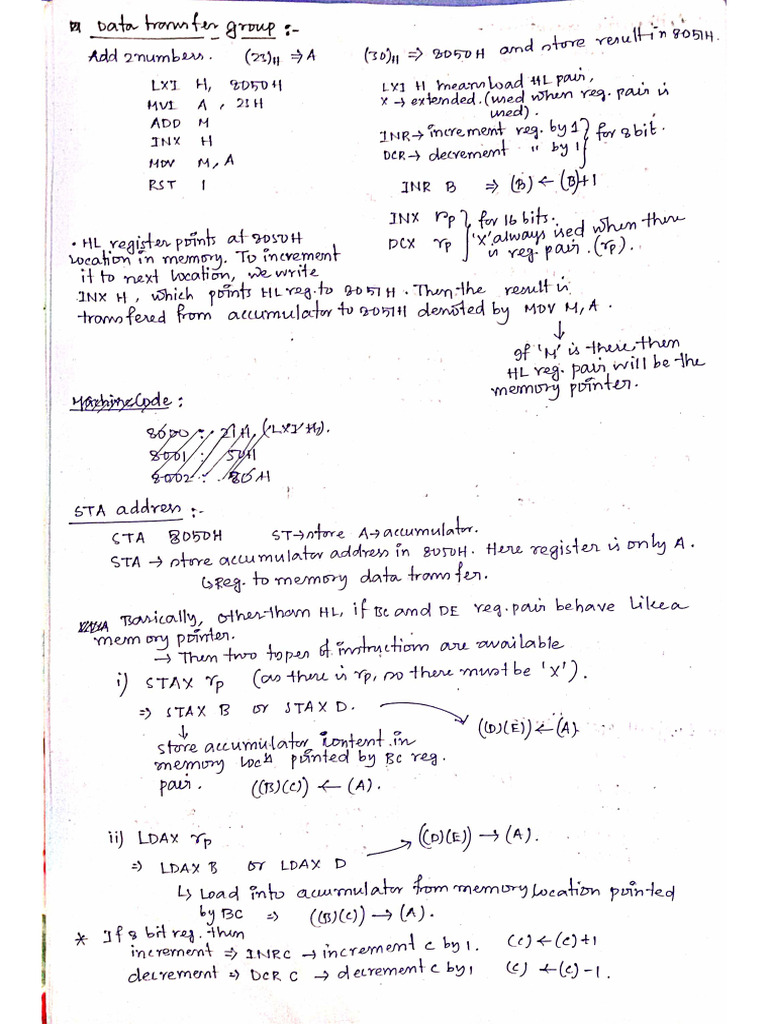 Data transfer group :-
Add 2 numbers. (23)H ⇒ A (30)H ⇒ 8050H and store result in 8051H.
LXI H, 8050H
MVI A, 23H
ADD M
INX H
MOV M, A
RST 1
LXI H means load HL pair,
X → extended. (used when reg. pair is
used).
INR → increment reg. by 1 } for 8 bit.
DCR → decrement " by 1
INR B ⇒ (B) ← (B)+1
INX rp } for 16 bits.
DCX rp 'X' always used when there
is reg. pair. (rp).
• HL register points at 8050H
location in memory. To increment
it to next location, we write
INX H, which points HL reg. to 8051H. Then the result is
transfered from accumulator to 8051H denoted by MOV M, A.
↓
If 'M' is there then
HL reg. pair will be the
memory pointer.
Machine Code :
8000 : 21H, (LXI H).
8001 : 50H
8002 : 80H
STA address :-
STA 8050H ST→store A→accumulator.
STA → store accumulator address in 8050H. Here register is only A.
↳ Reg. to memory data transfer.
Basically, other than HL, if BC and DE reg. pair behave like a
memory pointer.
→ Then two types of instruction are available
i) STAX rp (as there is rp, so there must be 'X').
⇒ STAX B or STAX D. → ((D)(E)) ← (A)
↓
store accumulator content in
memory locn pointed by BC reg.
pair. ((B)(C)) ← (A).
ii) LDAX rp → ((D)(E)) → (A).
⇒ LDAX B or LDAX D
↳ Load into accumulator from memory location pointed
by BC ⇒ ((B)(C)) → (A).
* If 8 bit reg. then
increment ⇒ INR C → increment C by 1. (C) ← (C)+1
decrement ⇒ DCR C → decrement C by 1 (C) ← (C)-1.